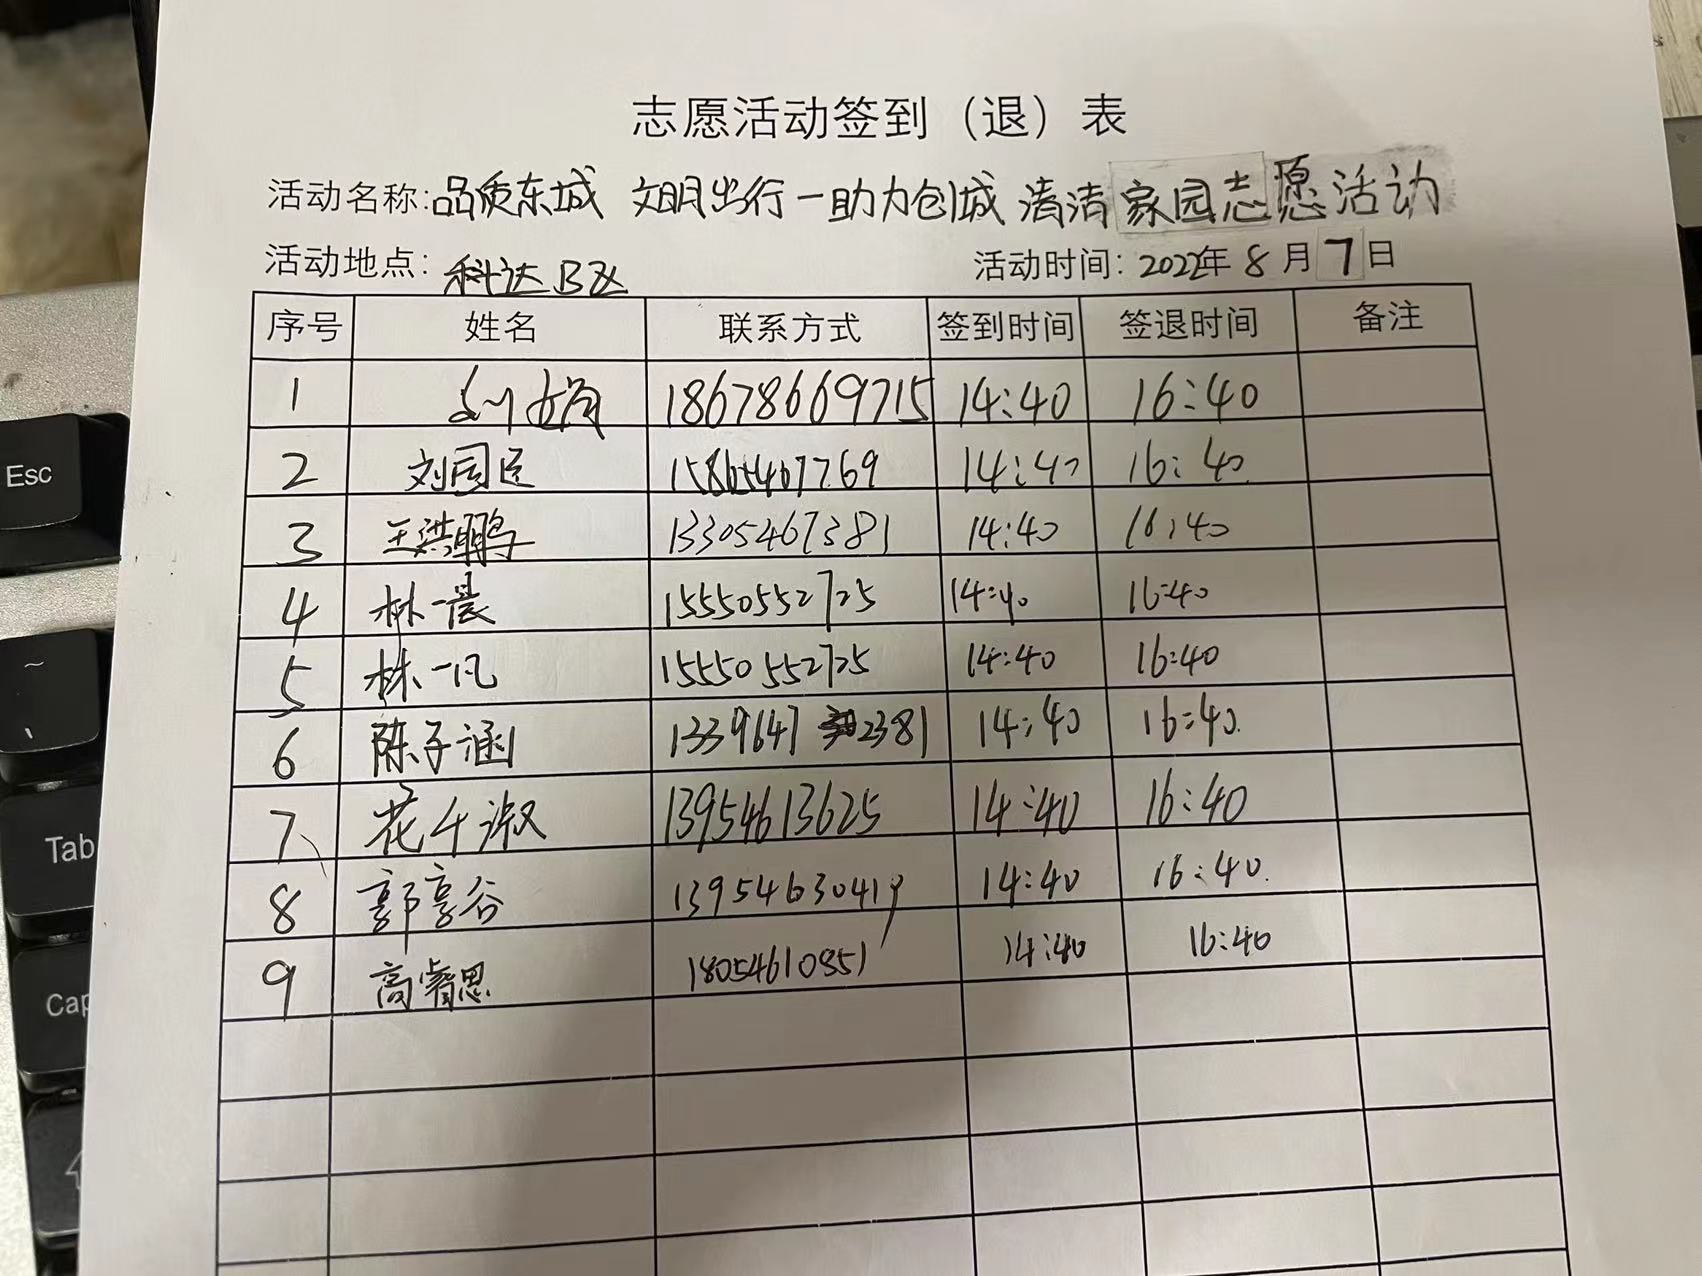 志愿活动签到（退）表
活动名称:品质东城 文明出行一助力创城 清清家园志愿活动
活动地点: 科达B区
活动时间: 2022年 8 月 7 日
序号 姓名 联系方式 签到时间 签退时间 备注
1 18678669715 14:40 16:40
2 刘国臣 15865467769 14:40 16:40
3 王洪鹏 13305467381 14:40 16:40
4 林一晨 15550552725 14:40 16:40
5 林一凡 15550552725 14:40 16:40
6 陈子涵 1339647 2381 14:40 16:40
7 花千淑 13954613625 14:40 16:40
8 郭享谷 13954630419 14:40 16:40
9 高睿思 18054610851 14:40 16:40
Esc
~
Tab
Cap